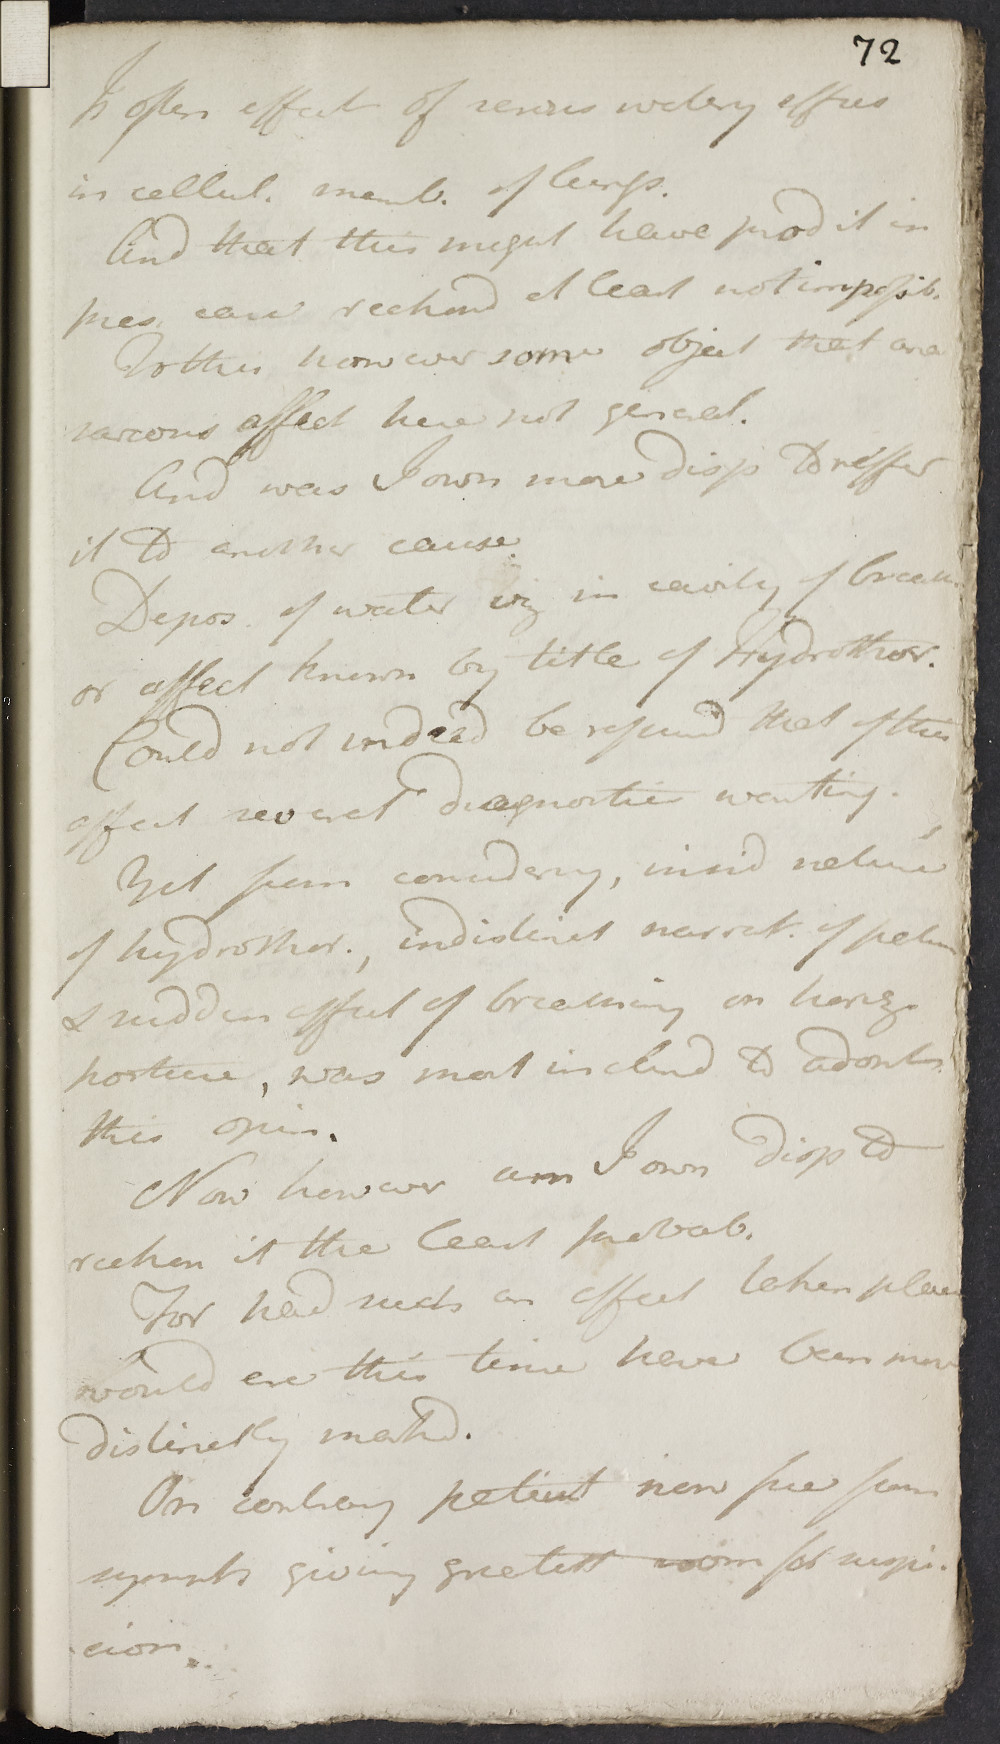 72
Is often effect of serous watery effus
in cellul. memb. of lungs.
And that this might have prod it in
pres. case reckond at least not impossib.
To this however some object that ana
sarcous affect here not general.
And was I own more disp to reffer
it to another cause.
Depos. of water viz in cavity of breast
or affect known by title of Hydrothor.
Could not indeed be refused that of this
affect several diagnostics wanting.
Yet from considering, insid nature
of hydrothor., indistinct narrat. of patien
& sudden effect of breathing on horiz
posture, was most inclind to adopt
this opin.
Now however am I own disp to
reckon it the least probab.
For had such an affect taken place
would ere this time have been more
distinctly markd.
On contrary patient now free from
sympts giving greatest room for suspi-
cion.